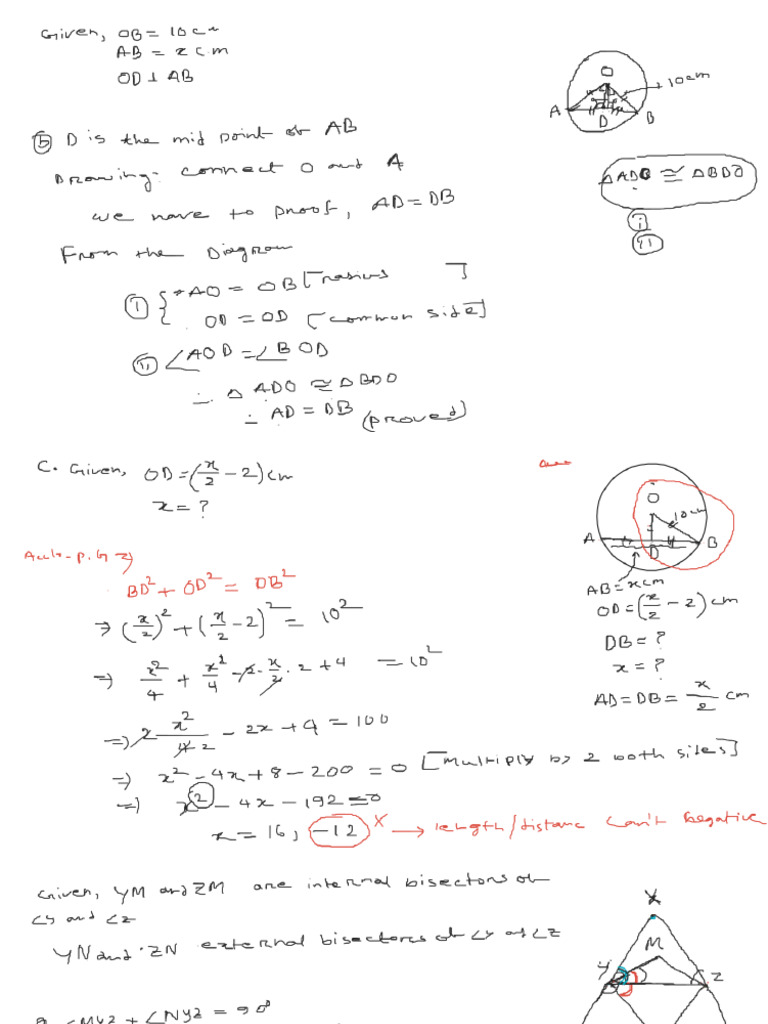 Given, OB = 10 cm
AB = x c.m
OD ⊥ AB
O
10cm
A
D
B
ⓑ D is the mid point of AB
Drawing: connect O and A
we have to proof, AD = DB
△ADO ≅ △BDO
ⓘ
ⓘⓘ
From the Diagram
ⓘ { *AO = OB [radius ]
OD = OD [common side]
ⓘⓘ ∠AOD = ∠BOD
∴ △ADO ≅ △BDO
∴ AD = DB (proved)
C. Given, OD = (x/2 - 2) cm
x = ?
O
10cm
A
D
B
AB = x cm
OD = (x/2 - 2) cm
DB = ?
x = ?
AD = DB = x/2 cm
BD² + OD² = DB²
⇒ (x/2)² + (x/2 - 2)² = 10²
⇒ x²/4 + x²/4 - 2·x/2·2 + 4 = 10²
⇒ 2 x²/4 2 - 2x + 4 = 100
⇒ x² - 4x + 8 - 200 = 0 [Multiply by 2 both sides]
⇒ x² - 4x - 192 = 0
x = 16, -12 x → length/distance can't Negative
Given, YM and ZM are internal bisectors of
∠y and ∠z
YN and ZN external bisectors of ∠y of ∠z
X
M
Y
Z
∠MYZ + ∠NYZ = 90°